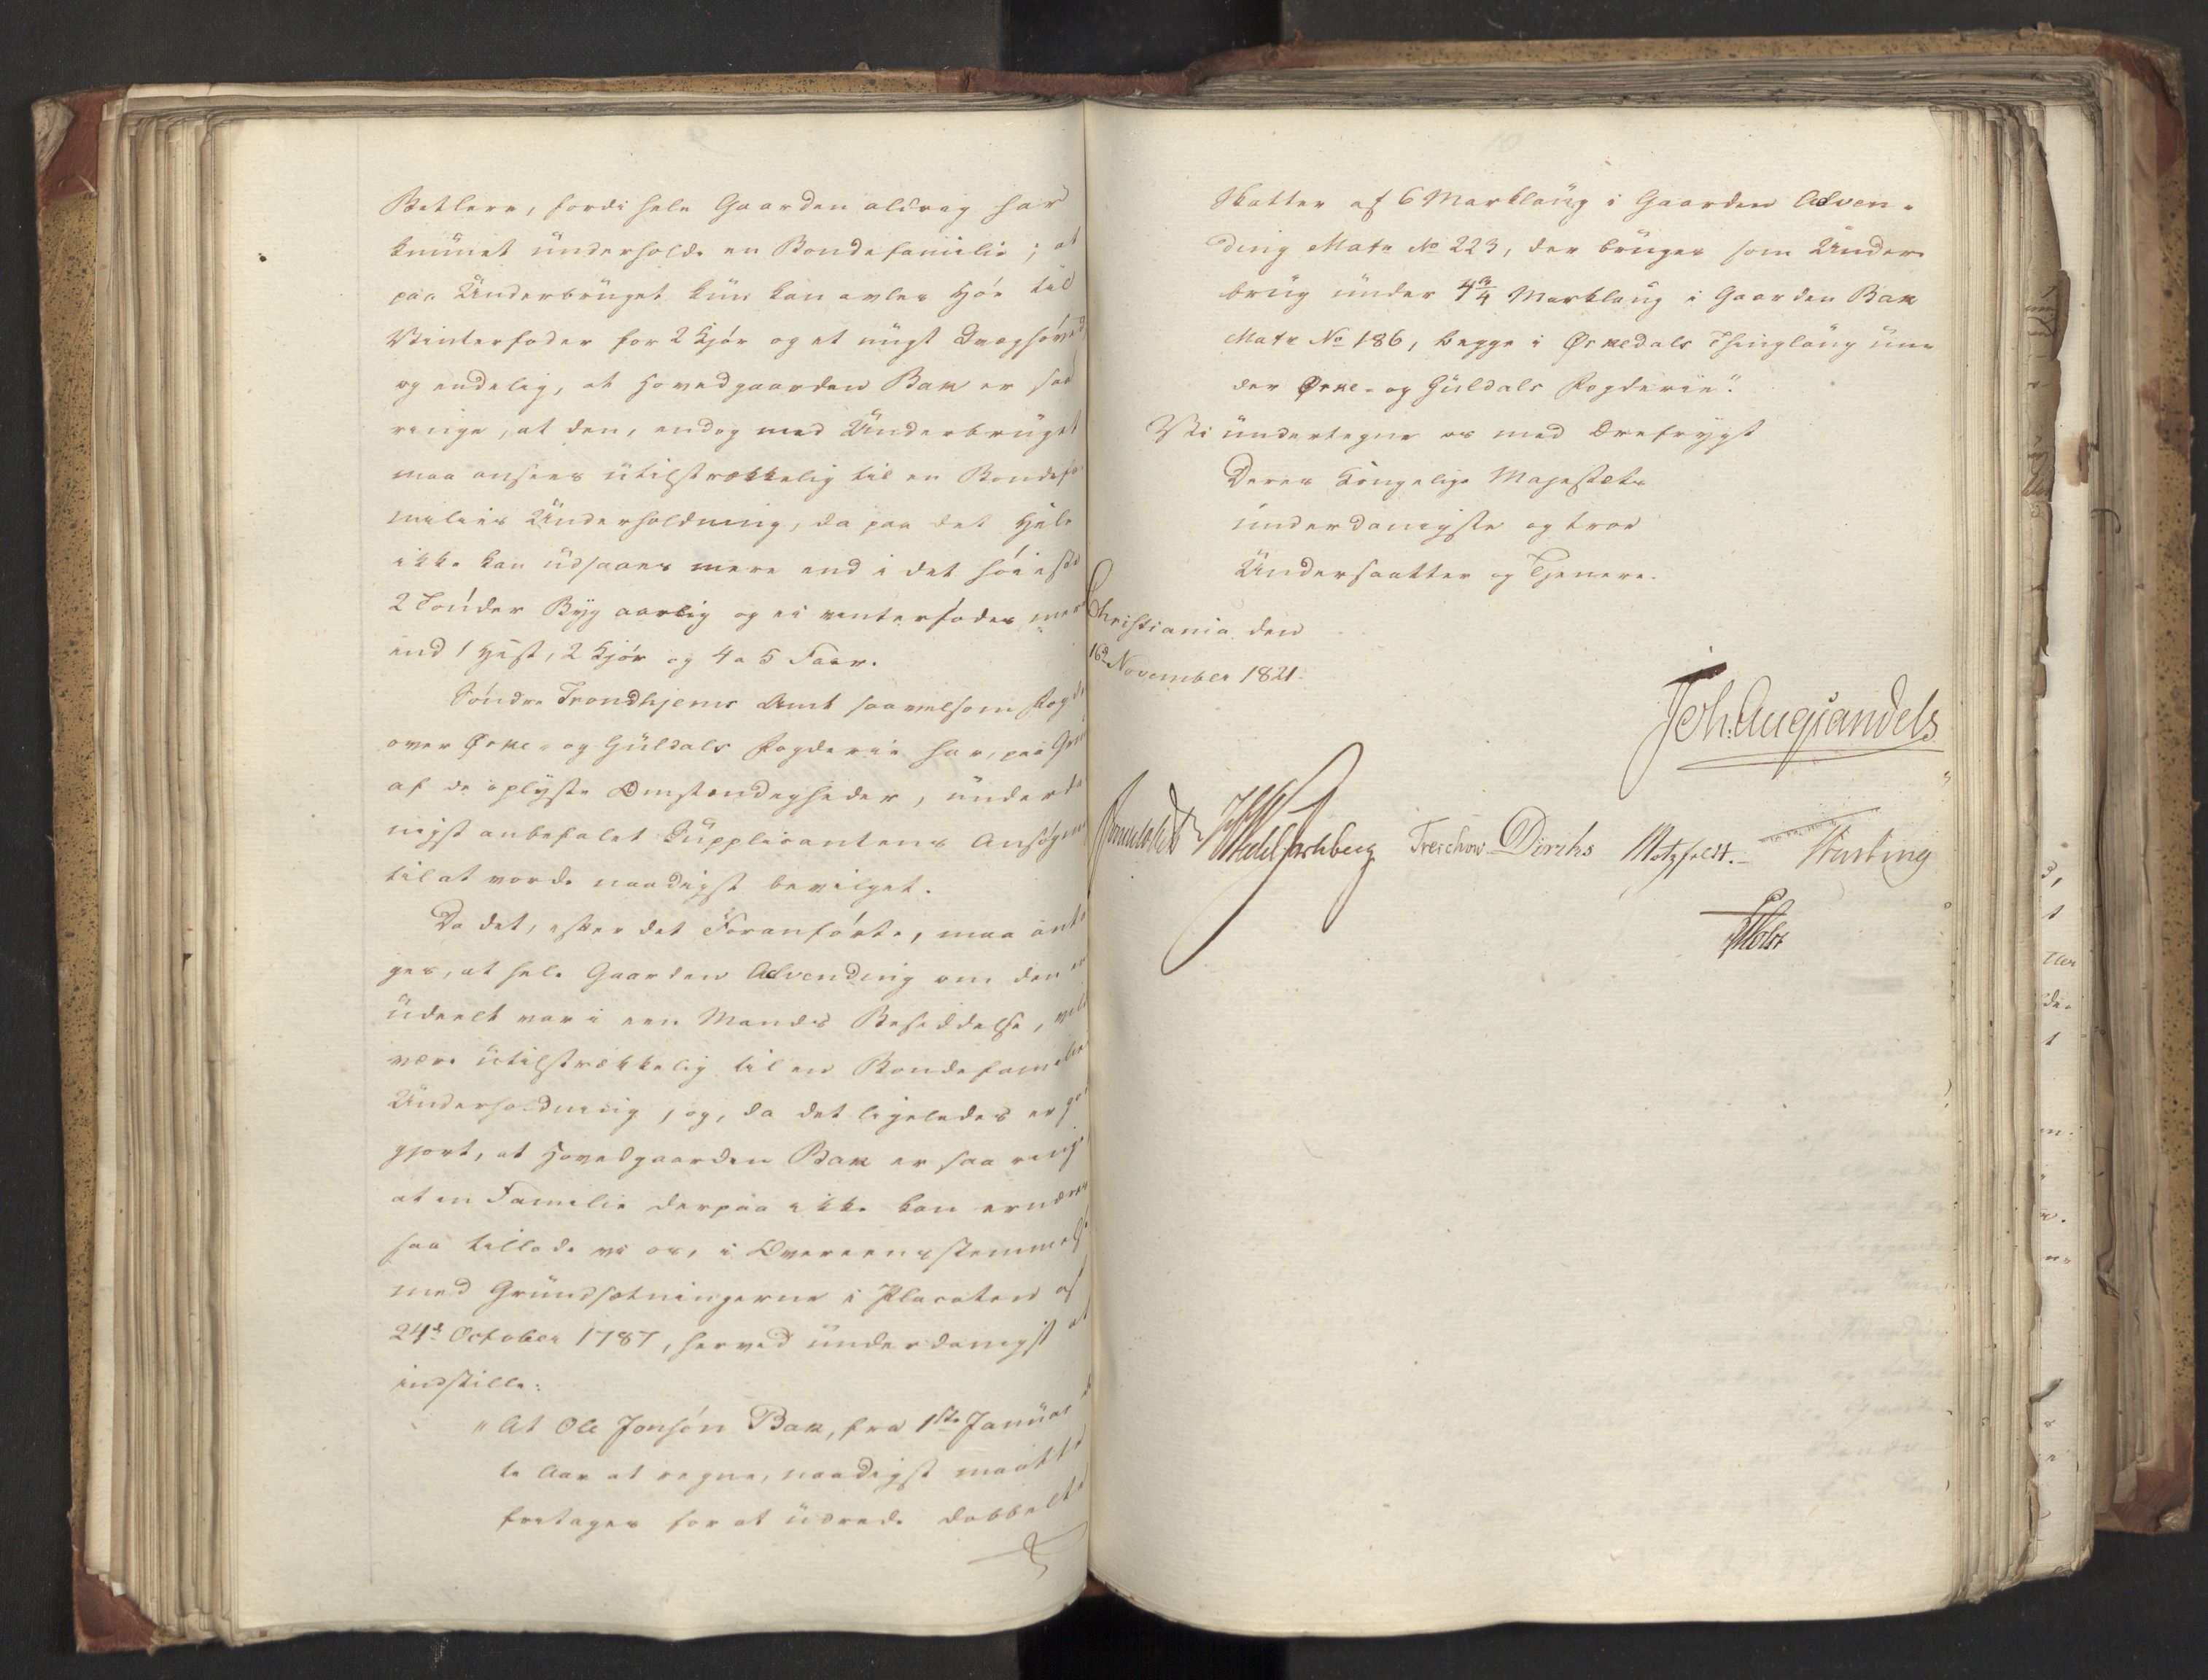 Betlere, fordi hele Gaarden aldrig har
kunnet underholde en Bondefamilie; at
paa Underbruget kun kan avles Høe til
Vinterfoder for 2 Kjør og et ungt Qvæghøved,
og endelig, at Hovedgaarden Bak er saa
ringe, at den, endog med Underbruget
maa ansees utilstrækkelig til en Bondefa-
milies Underholdning, da paa det Hele
ikke kan udsaaes mere end i det høieste
2 Tønder Byg aarlig og ei vinterfødes mere
end 1 Hest, 2 Kjør og 4 a 5 Faar.
Søndre Trondhjems Amt saavelsom Fogden
over Orke- og Guldals Fogderie har, paa Grund
af de oplyste Omstændigheder, underda-
nigst anbefalet Supplicantens Ansøgning
til at vorde naadigst bevilget.
Da det, efter det Foranførte, maa anta-
ges, at hele Gaarden Advending om den end
udeelt var i een Mands Besiddelse, vilde
være utilstrækkelig til en Bondefamilies
Underholdning, og, da det ligeledes er god-
gjort, at Hovedgaarden Bak er saa ringe
at en Familie derpaa ikke kan ernæres
saa tillade vi os, i Overeensstemmelse
med Grundsætningerne i Placaten af
24de October 1787, herved underdanigst at
indstille:
"At Ole Jonsøn Bak, fra 1ste Januar
te Aar at regne, naadigst maatte
fritages for at udrede dobbelte
Skatter af 6 Marklaug i Gaarden Adven-
ding Matr No 223, der bruges som Under-
brug under 4 3/4 Marklaug i Gaarden Bak
Matr No 186, begge i Ørkedals Thinglaug un-
der Ørke- og Guldals Fogderie".
Vi undertegne os med Ærefrygt
Deres Kongelige Majestæts
underdanigste og troe
Undersaatter og Tjenere.
Christiania den
16de November 1821.
Joh. Aug. Sandels
Sommerhielm Wedel Jarlsberg Treschow Diriks Motzfeldt. Hasting
Holst